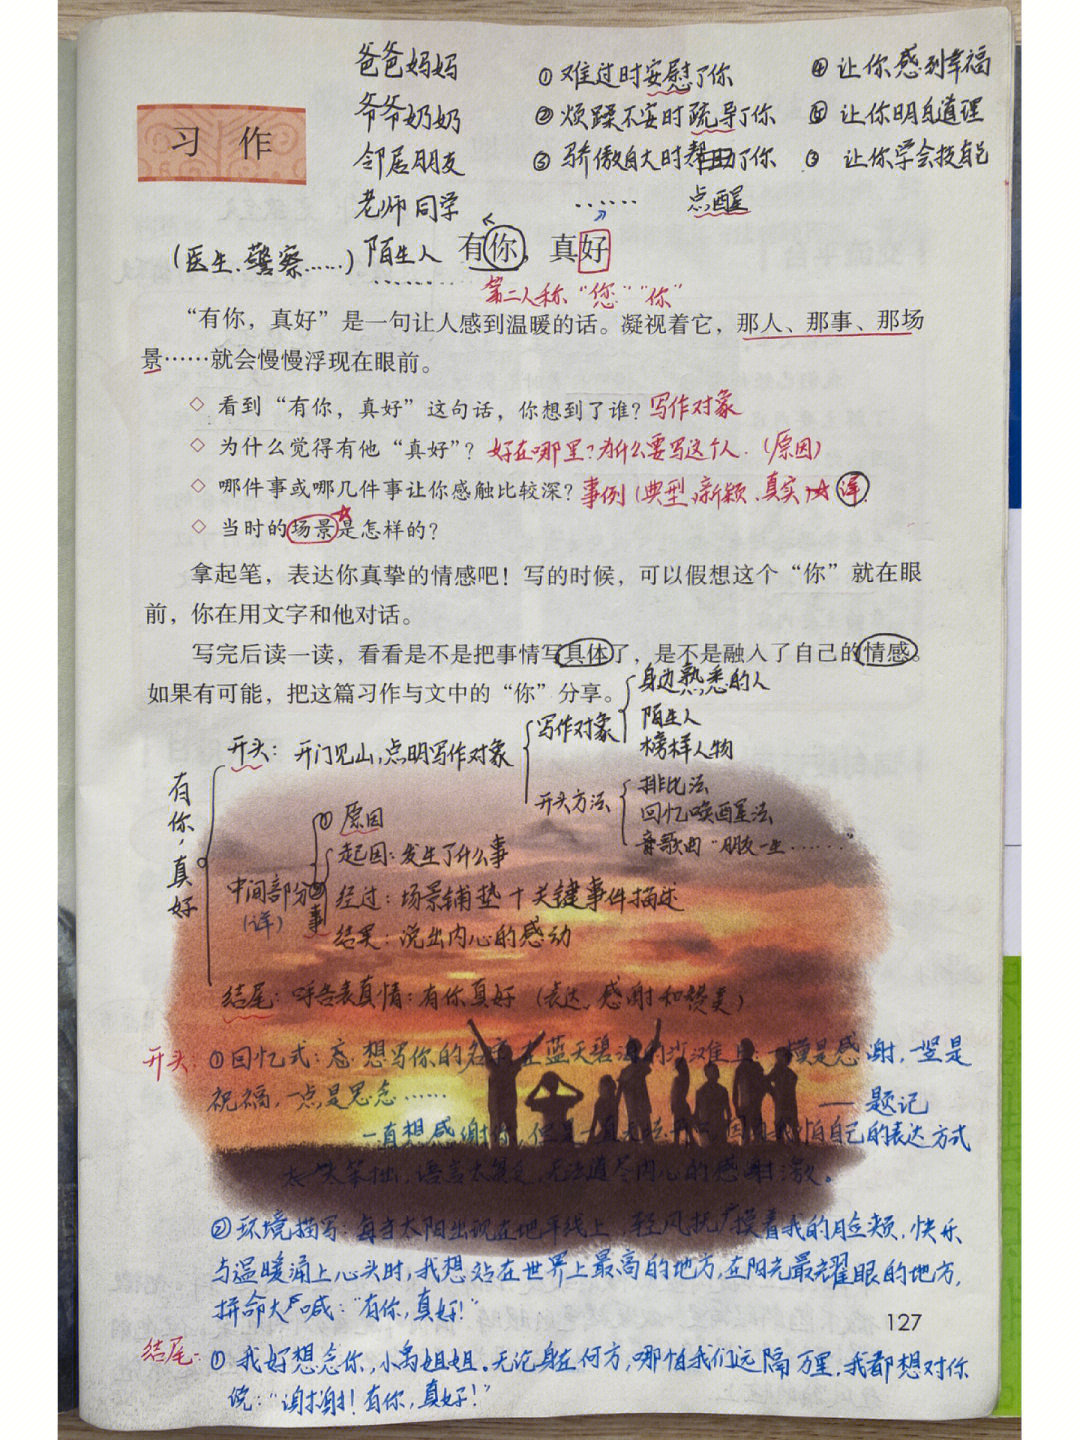 爸爸妈妈 ①难过时安慰了你 ④让你感到幸福
爷爷奶奶 ②烦躁不安时疏导了你 ⑤让你明白道理
习 作
邻居朋友 ③骄傲自大时帮助了你 让你学会找自己
老师同学 …… 点醒
(医生、警察……) 陌生人 有你，真好
第二人称 “您” “你”
“有你，真好”是一句让人感到温暖的话。凝视着它，那人、那事、那场
景……就会慢慢浮现在眼前。
◇ 看到“有你，真好”这句话，你想到了谁？ 写作对象
◇ 为什么觉得有他“真好”？ 好在哪里？为什么要写这个人.（原因）
◇ 哪件事或哪几件事让你感触比较深？ 事例（典型、新颖、真实）☆ 详.
◇ 当时的场景是怎样的？
拿起笔，表达你真挚的情感吧！写的时候，可以假想这个“你”就在眼
前，你在用文字和他对话。
写完后读一读，看看是不是把事情写具体了，是不是融入了自己的情感。
如果有可能，把这篇习作与文中的“你”分享。
身边熟悉的人
写作对象 陌生人
榜样人物
开头：开门见山，点明写作对象
开头方法 排比法
回忆唤醒法
音歌曲“朋友一生……”
有你，真好
①原因
起因：发生了什么事
中间部分 ②事 经过：场景铺垫＋关键事件描述
（详）
结果：说出内心的感动
结尾：呼告表真情：有你真好（表达、感谢和赞美）
开头：①回忆式：忘 想写你的名字在蓝天碧海的沙滩上：横是感谢，竖是
祝福，一点是思念……
——题记
一直想感谢你，但是一直 怕自己的表达方式
太 笨拙，语言太 ，无法道尽内心的感谢激。
②环境描写：每当太阳出现在地平线上，轻风抚摸着我的脸颊，快乐
与温暖涌上心头时，我想站在世界上最高的地方，在阳光最耀眼的地方，
拼命大喊：“有你，真好！”
127
结尾：①我好想念你，小禹姐姐.无论身在何方，哪怕我们远隔万里，我都想对你
说：“谢谢！有你，真好！”